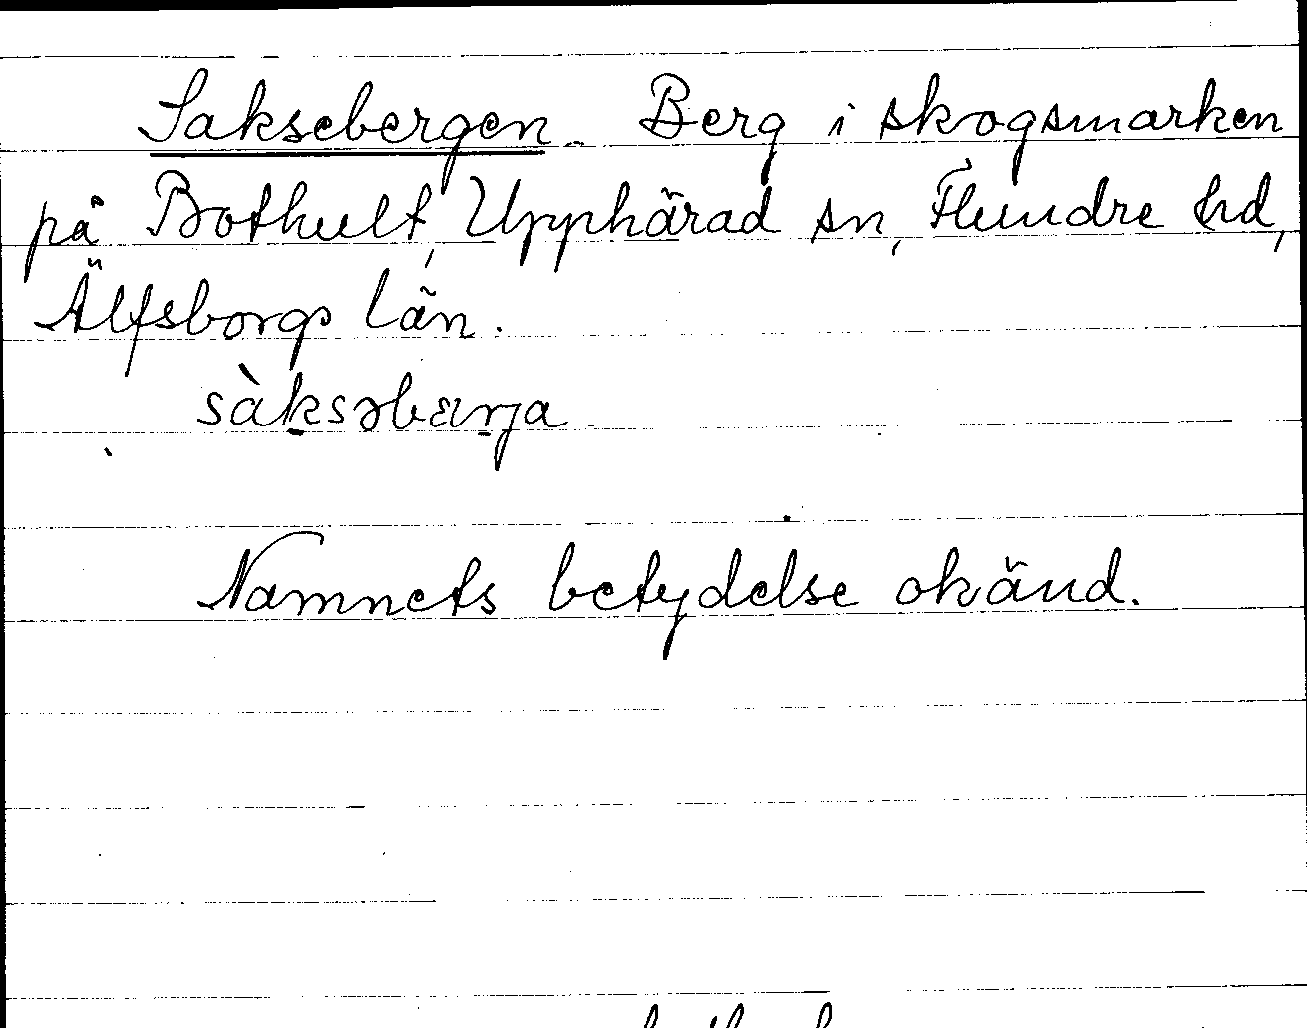 Saksebergen. Berg i skogsmarken
på Bothult, Upphärad sn, Flundre hd,
Älfsborgs län.
sàksəbærja
Namnets betydelse okänd.